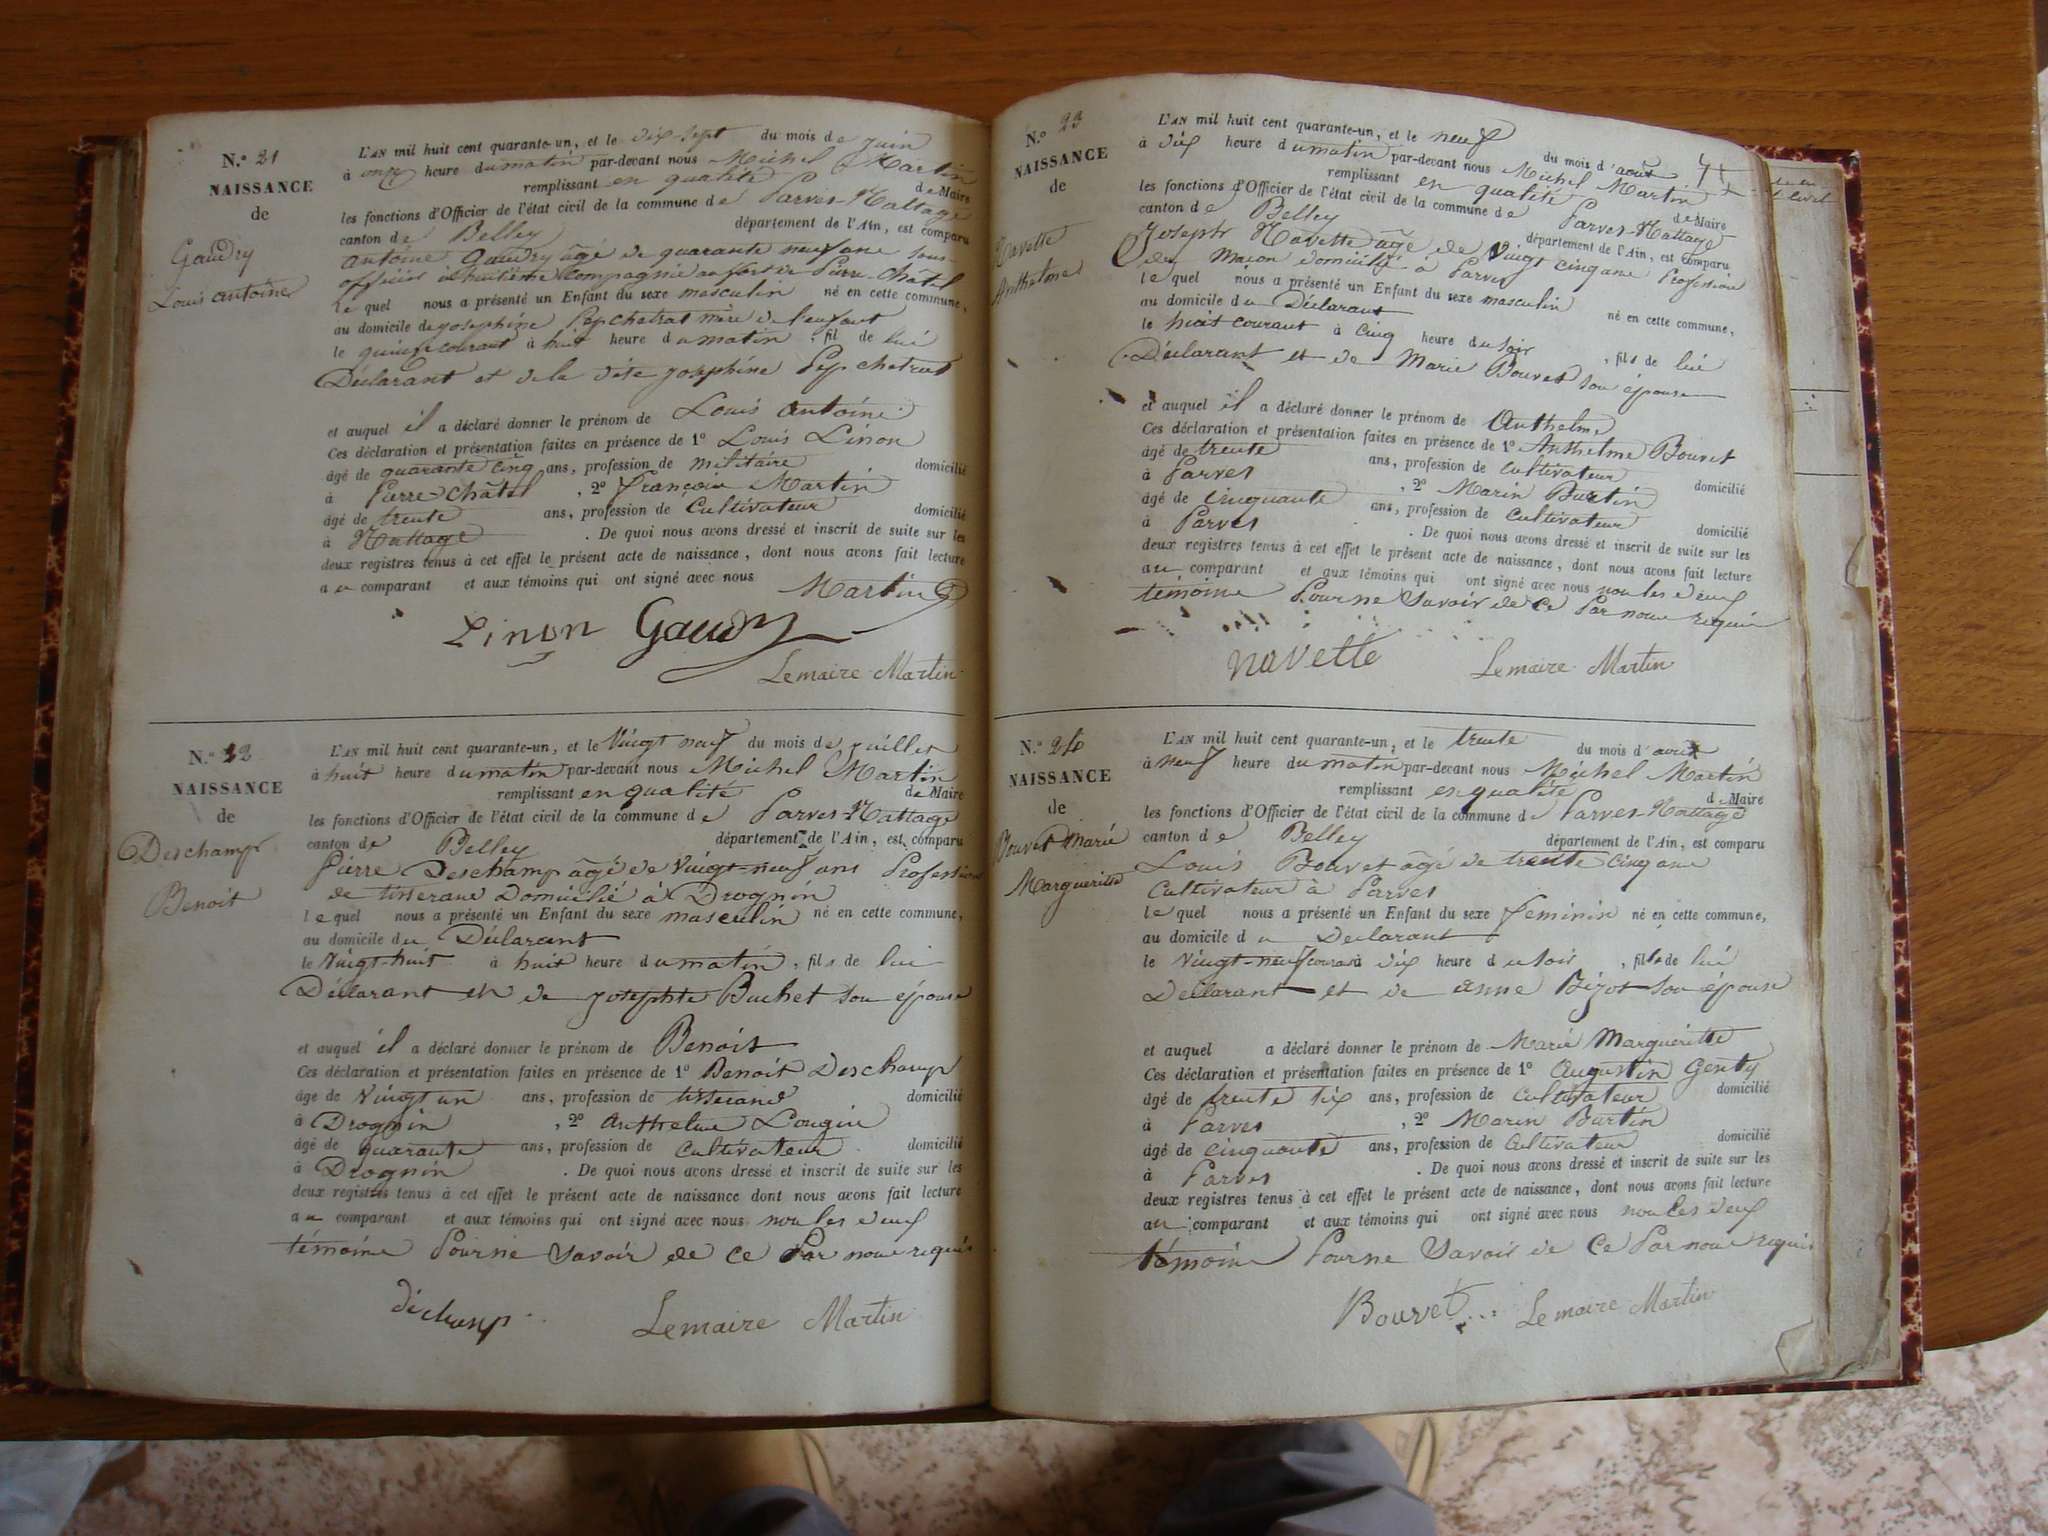 N.º 21
NAISSANCE
de
Gaudry
Louis antoine
L'AN mil huit cent quarante-un, et le dix-sept du mois de juin
à onze heure du matin par-devant nous Michel Martin
remplissant en qualité de Maire
les fonctions d'Officier de l'état civil de la commune de Parves-Nattage
canton de Belley département de l'Ain, est comparu
antoine Gaudry âgé de quarante neuf ans sous
officier huitième Compagnie au fort de Pierre-Châtel
lequel nous a présenté un Enfant du sexe masculin né en cette commune,
au domicile de josephine mère de l'enfant
le quinze courant à huit heure du matin, fil de lui
Déclarant et de la dite josephine
et auquel il a déclaré donner le prénom de Louis antoine
Ces déclaration et présentation faites en présence de 1º Louis Linon
âgé de quarante cinq ans, profession de militaire domicilié
à Pierre-châtel, 2º françois Martin
âgé de trente ans, profession de Cultivateur domicilié
à Nattage. De quoi nous avons dressé et inscrit de suite sur les
deux registres tenus à cet effet le présent acte de naissance, dont nous avons fait lecture
au comparant et aux témoins qui ont signé avec nous
Martin
Linon Gaudry
Lemaire Martin
N.º 22
NAISSANCE
de
Deschamp
Benoit
L'AN mil huit cent quarante-un, et le Vingt neuf du mois de juillet
à huit heure du matin par-devant nous Michel Martin
remplissant en qualité de Maire
les fonctions d'Officier de l'état civil de la commune de Parves-Nattage
canton de Belley département de l'Ain, est comparu
Pierre Deschamp âgé de Vingt-neuf ans Profession
de tisserand Domicilié à Drognin
lequel nous a présenté un Enfant du sexe masculin né en cette commune,
au domicile du Déclarant
le Vingt-huit à huit heure du matin, fils de lui
Déclarant et de josephte Buchet son épouse
et auquel il a déclaré donner le prénom de Benoit
Ces déclaration et présentation faites en présence de 1º Benoit Deschamp
âgé de Vingt un ans, profession de tisserand domicilié
à Drognin, 2º Anthelme Longin
âgé de quarante ans, profession de Cultivateur domicilié
à Drognin. De quoi nous avons dressé et inscrit de suite sur les
deux registres tenus à cet effet le présent acte de naissance dont nous avons fait lecture
au comparant et aux témoins qui ont signé avec nous non les deux
témoins Pour ne Savoir de ce Par nous requis
déchamp
Lemaire Martin
N.º 23
NAISSANCE
de
Navette
Anthelme
L'AN mil huit cent quarante-un, et le neuf du mois d'août
à dix heure du matin par-devant nous Michel Martin
remplissant en qualité de Maire
les fonctions d'Officier de l'état civil de la commune de Parves-Nattage
canton de Belley département de l'Ain, est comparu
Joseph Navette âgé de Vingt cinq ans Profession
de Maçon domicilié à Parves
lequel nous a présenté un Enfant du sexe masculin né en cette commune,
au domicile du Déclarant
le huit courant à Cinq heure du soir, fils de lui
Déclarant et de Marie Bouvet son épouse
et auquel il a déclaré donner le prénom de Anthelme
Ces déclaration et présentation faites en présence de 1º Anthelme Bouvet
âgé de trente ans, profession de Cultivateur domicilié
à Parves, 2º Marin Burtin
âgé de Cinquante ans, profession de Cultivateur domicilié
à Parves. De quoi nous avons dressé et inscrit de suite sur les
deux registres tenus à cet effet le présent acte de naissance, dont nous avons fait lecture
au comparant et aux témoins qui ont signé avec nous non les deux
témoins Pour ne Savoir de Ce Par nous requis
navette
Lemaire Martin
N.º 24
NAISSANCE
de
Bouvet Marie
Marguerite
L'AN mil huit cent quarante-un, et le trente du mois d'aout
à neuf heure du matin par-devant nous Michel Martin
remplissant en qualité de Maire
les fonctions d'Officier de l'état civil de la commune de Parves-Nattage
canton de Belley département de l'Ain, est comparu
Louis Bouvet âgé de trente cinq ans
Cultivateur à Parves
lequel nous a présenté un Enfant du sexe feminin né en cette commune,
au domicile du Déclarant
le Vingt-neuf courant à dix heure du soir, fils de lui
Déclarant et de anne Bizot son épouse
et auquel a déclaré donner le prénom de Marie Margueritte
Ces déclaration et présentation faites en présence de 1º Augustin Genty
âgé de trente six ans, profession de Cultivateur domicilié
à Parves, 2º Marin Burtin
âgé de cinquante ans, profession de Cultivateur domicilié
à Parves. De quoi nous avons dressé et inscrit de suite sur les
deux registres tenus à cet effet le présent acte de naissance, dont nous avons fait lecture
au comparant et aux témoins qui ont signé avec nous non les deux
témoins Pour ne Savoir de Ce Par nous requis
Bouvet
Lemaire Martin